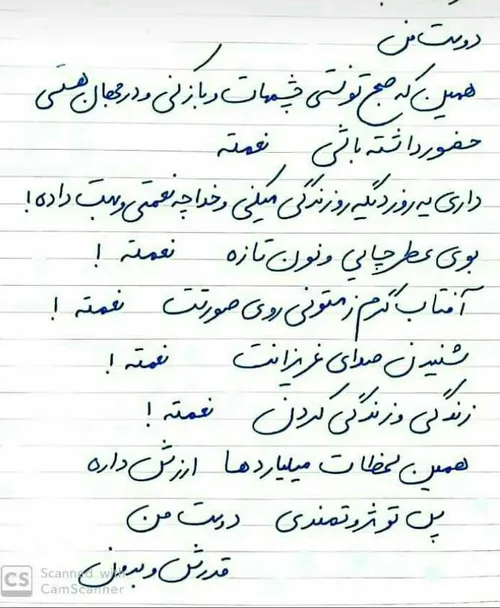 دوست من
همین که صبح تونستی چشمات و باز کنی و در جهان هستی
حضور داشته باشی نعمته
داری یه روز دیگه رو زندگی میکنی و خدا چه نعمتی و بهت داده!
بوی عطر چایی و نون تازه نعمته !
آفتاب گرم زمستونی روی صورتت نعمته !
شنیدن صدای عزیزانت نعمته !
زندگی و زندگی کردن نعمته !
همین لحظات میلیاردها ارزش داره
پس تو ثروتمندی دوست من
قدرش و بدون
CS Scanned with
CamScanner